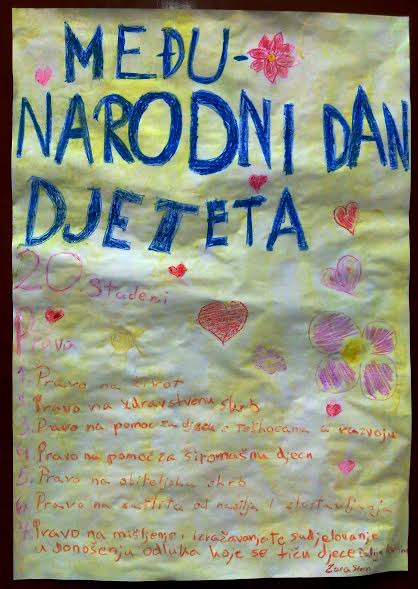 MEĐU-
NARODNI DAN
DJETETA
20. Studeni
Prava
1. Pravo na život
2. Pravo na zdravstvenu skrb
3. Pravo na pomoć za djecu s teškoćama u razvoju
4. Pravo na pomoć za siromašnu djecu
5. Pravo na obiteljsku skrb
6. Pravo na zaštitu od nasilja i zlostavljanja
7. Pravo na mišljenje i izražavanje te sudjelovanje
u donošenju odluka koje se tiču djece
Zara